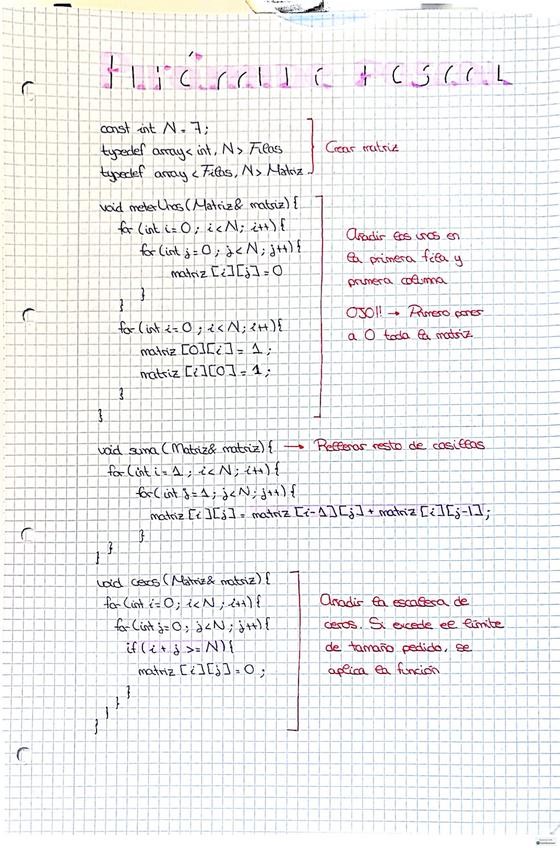 const int N = 7;
typedef array< int, N> Filas
typedef array < Filas, N> Matriz
Crear matriz
void meterUnos (Matriz& matriz) {
for (int i=0; i<N; i++) {
for (int j=0; j<N; j++) {
matriz [i][j] = 0
}
}
for (int i=0; i<N; i++) {
matriz [0][i] = 1;
matriz [i][0] = 1;
}
}
Añadir los unos en
la primera fila y
primera columna
OJO!! → Primero poner
a 0 toda la matriz
void suma (Matriz& matriz) { → Rellenar resto de casillas
for (int i = 1; i<N; i++) {
for (int j=1; j<N; j++) {
matriz [i][j] = matriz [i-1][j] + matriz [i][j-1];
}
}
}
void ceros (Matriz& matriz) {
for (int i=0; i<N; i++) {
for (int j=0; j<N; j++) {
if (i + j >= N) {
matriz [i][j] = 0;
}
}
}
}
Añadir la escalera de
ceros. Si excede el límite
de tamaño pedido, se
aplica la función